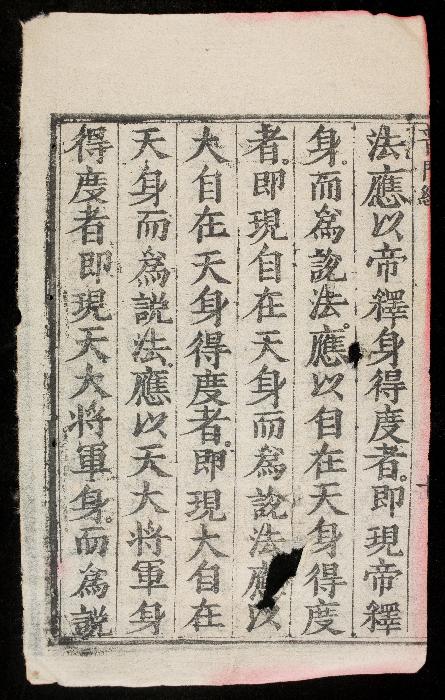 普門經
法應以帝釋身得度者。即現帝釋
身。而爲說法。應以自在天身得度
者。即現自在天身而爲說法應以
大自在天身得度者。即現大自在
天身而爲說法。應以天大將軍身
得度者即現天大將軍身。而爲說